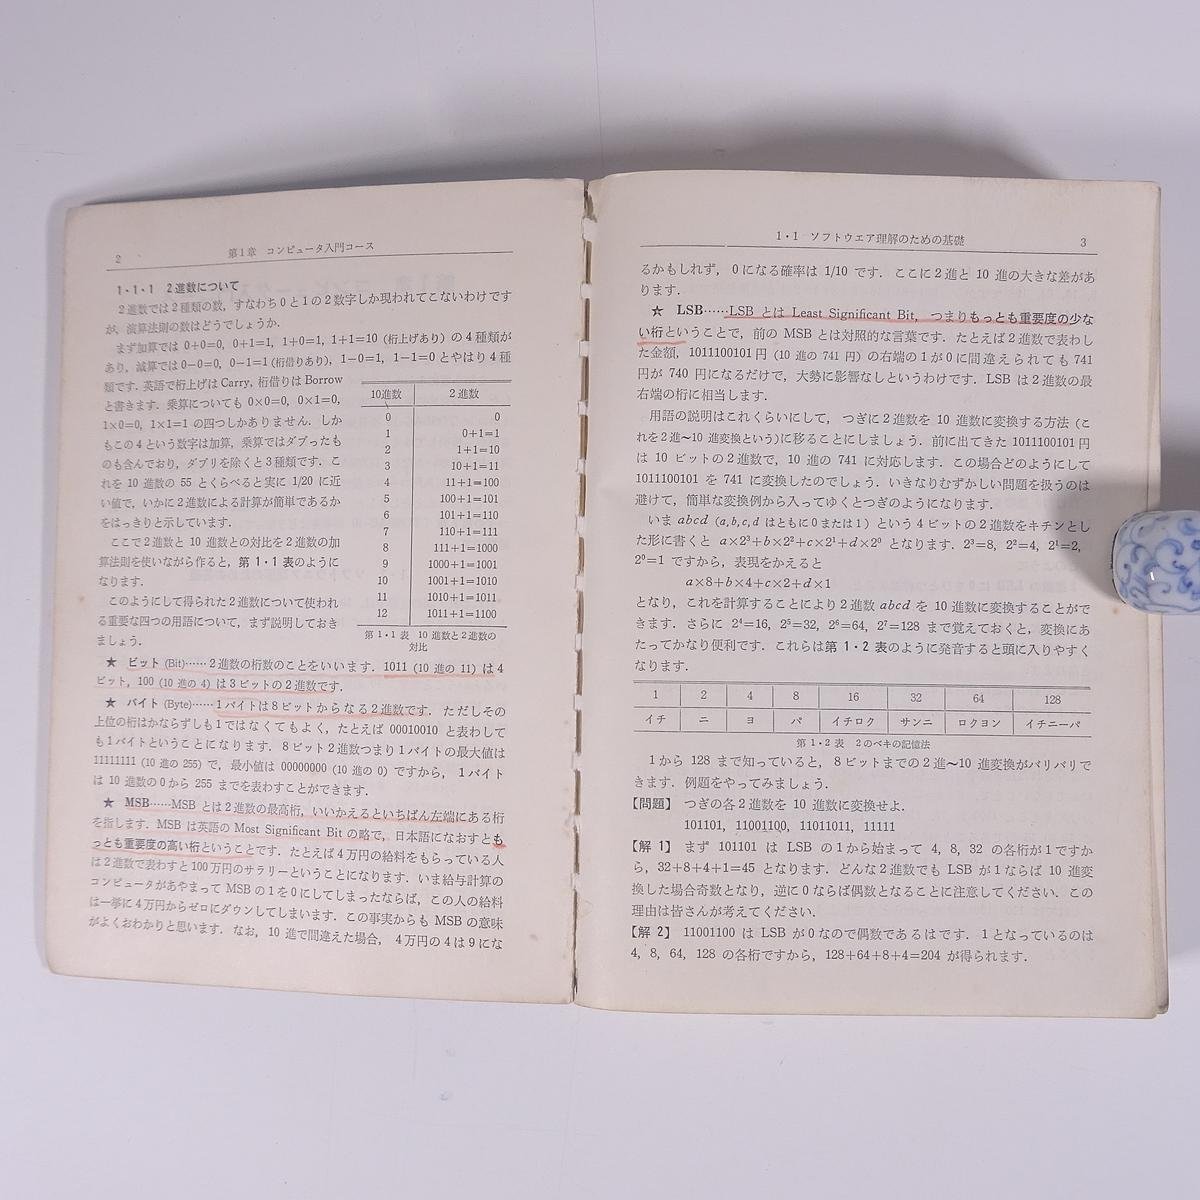 2
第1章 コンピュータ入門コース
1・1・1 2進数について
2進数では2種類の数，すなわち0と1の2数字しか現われてこないわけです
が，演算法則の数はどうでしょうか．
まず加算では 0+0=0, 0+1=1, 1+0=1, 1+1=10 (桁上げあり) の4種類が
あり，減算では 0−0=0, 0−1=1 (桁借りあり), 1−0=1, 1−1=0 とやはり4種
類です．英語で桁上げは Carry, 桁借りは Borrow
と書きます．乗算についても 0×0=0, 0×1=0,
1×0=0, 1×1=1 の四つしかありません．しか
もこの4という数字は加算，乗算ではダブったも
のも含んでおり，ダブリを除くと3種類です．こ
れを 10 進数の 55 とくらべると実に 1/20 に近
い値で，いかに2進数による計算が簡単であるか
をはっきりと示しています．
ここで2進数と 10 進数との対比を2進数の加
算法則を使いながら作ると，第1・1表のように
なります．
このようにして得られた2進数について使われ
る重要な四つの用語について，まず説明しておき
ましょう．
10進数 2進数
0 0
1 0+1=1
2 1+1=10
3 10+1=11
4 11+1=100
5 100+1=101
6 101+1=110
7 110+1=111
8 111+1=1000
9 1000+1=1001
10 1001+1=1010
11 1010+1=1011
12 1011+1=1100
第1・1表 10 進数と2進数の
対比
★ ビット (Bit)……2進数の桁数のことをいいます．1011 (10 進の 11) は4
ビット，100 (10 進の 4) は3ビットの2進数です．
★ バイト (Byte)……1バイトは8ビットからなる2進数です．ただしその
上位の桁はかならずしも1ではなくてもよく，たとえば 00010010 と表わして
も1バイトということになります．8ビット2進数つまり1バイトの最大値は
11111111 (10 進の 255) で，最小値は 00000000 (10 進の 0) ですから，1バイト
は 10 進数の0から 255 までを表わすことができます．
★ MSB……MSB とは2進数の最高桁，いいかえるといちばん左端にある桁
を指します．MSB は英語の Most Significant Bit の略で，日本語になおすとも
っとも重要度の高い桁ということです．たとえば4万円の給料をもらっている人
は2進数で表わすと100万円のサラリーということになります．いま給与計算の
コンピュータがあやまって MSB の1を0にしてしまったならば，この人の給料
は一挙に4万円からゼロにダウンしてしまいます．この事実からも MSB の意味
がよくおわかりと思います．なお，10 進で間違えた場合，4万円の4は9にな
1・1 ソフトウエア理解のための基礎
3
るかもしれず，0になる確率は 1/10 です．ここに2進と 10 進の大きな差があ
ります．
★ LSB……LSB とは Least Significant Bit, つまりもっとも重要度の少な
い桁ということで，前の MSB とは対照的な言葉です．たとえば2進数で表わし
た金額，1011100101 円 (10 進の 741 円) の右端の1が0に間違えられても 741
円が 740 円になるだけで，大勢に影響なしというわけです．LSB は2進数の最
右端の桁に相当します．
用語の説明はこれくらいにして，つぎに2進数を 10 進数に変換する方法 (こ
れを2進〜10 進変換という) に移ることにしましょう．前に出てきた 1011100101 円
は 10 ビットの2進数で，10 進の 741 に対応します．この場合どのようにして
1011100101 を 741 に変換したのでしょう．いきなりむずかしい問題を扱うのは
避けて，簡単な変換例から入ってゆくとつぎのようになります．
いま abcd (a,b,c,d はともに0または1) という4ビットの2進数をキチンとし
た形に書くと a×2³+b×2²+c×2¹+d×2⁰ となります．2³=8, 2²=4, 2¹=2,
2⁰=1 ですから，表現をかえると
a×8+b×4+c×2+d×1
となり，これを計算することにより2進数 abcd を 10 進数に変換することがで
きます．さらに 2⁴=16, 2⁵=32, 2⁶=64, 2⁷=128 まで覚えておくと，変換にあ
たってかなり便利です．これらは第1・2表のように発音すると頭に入りやすく
なります．
1 2 4 8 16 32 64 128
イチ ニ ヨ パ イチロク サンニ ロクヨン イチニーパ
第1・2表 2のベキの記憶法
1から 128 まで知っていると，8ビットまでの2進〜10 進変換がバリバリで
きます．例題をやってみましょう．
【問題】 つぎの各2進数を 10 進数に変換せよ．
101101, 11001100, 11011011, 11111
【解 1】 まず 101101 は LSB の1から始まって 4, 8, 32 の各桁が1ですか
ら，32+8+4+1=45 となります．どんな2進数でも LSB が1ならば 10 進変
換した場合奇数となり，逆に0ならば偶数となることに注意してください．この
理由は皆さんが考えてください．
【解 2】 11001100 は LSB が0なので偶数であるはです．1となっているのは
4, 8, 64, 128 の各桁ですから，128+64+8+4=204 が得られます．